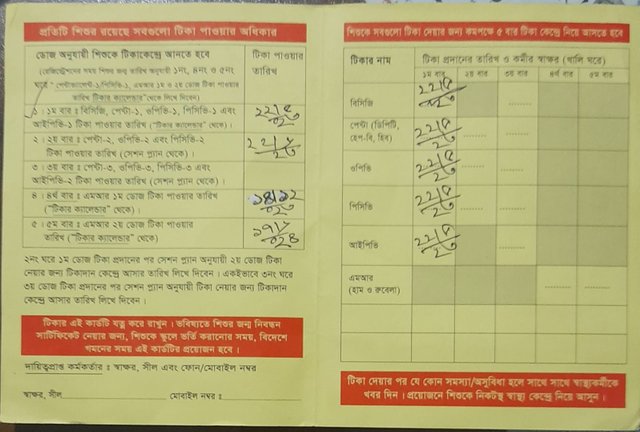 প্রতিটি শিশুর রয়েছে সবগুলো টিকা পাওয়ার অধিকার
ডোজ অনুযায়ী শিশুকে টিকাকেন্দ্রে আনতে হবে
(রেজিস্ট্রেশনের সময় শিশুর জন্ম তারিখ অনুযায়ী ১নং, ৪নং ও ৫নং
ঘরে "পেন্টাভ্যালেন্ট-১/পিসিভি-১, এমআর ১ম ও ২য় ডোজ টিকা পাওয়ার
তারিখ টিকার ক্যালেন্ডার" থেকে লিখে দিবেন)
টিকা পাওয়ার
তারিখ
১ : ১ম বার : বিসিজি, পেন্টা-১, ওপিভি-১, পিসিভি-১ এবং
আইপিভি-১ টিকা পাওয়ার তারিখ ("টিকার ক্যালেন্ডার" থেকে)।
২ : ২য় বার : পেন্টা-২, ওপিভি-২ এবং পিসিভি-২
টিকা পাওয়ার তারিখ (সেশন প্ল্যান থেকে)।
৩ : ৩য় বার : পেন্টা-৩, ওপিভি-৩, পিসিভি-৩ এবং
আইপিভি-২ টিকা পাওয়ার তারিখ (সেশন প্ল্যান থেকে)।
৪ : ৪র্থ বার : এমআর ১ম ডোজ টিকা পাওয়ার তারিখ
"টিকার ক্যালেন্ডার" থেকে)।
৫ : ৫ম বার : এমআর ২য় ডোজ টিকা পাওয়ার
তারিখ ("টিকার ক্যালেন্ডার" থেকে)
২নং ঘরে ১ম ডোজ টিকা প্রদানের পর সেশন প্ল্যান অনুযায়ী ২য় ডোজ টিকা
নেয়ার জন্য টিকাদান কেন্দ্রে আসার তারিখ লিখে দিবেন। একইভাবে ৩নং ঘরে
৩য় ডোজ টিকা প্রদানের পর সেশন প্ল্যান অনুযায়ী টিকা নেয়ার জন্য টিকাদান
কেন্দ্রে আসার তারিখ লিখে দিবেন।
টিকার এই কার্ডটি যত্ন করে রাখুন। ভবিষ্যতে শিশুর জন্ম নিবন্ধন
সার্টিফিকেট নেয়ার জন্য, শিশুকে স্কুলে ভর্তি করানোর সময়, বিদেশে
গমনের সময় এই কার্ডটির প্রয়োজন হবে।
দায়িত্বপ্রাপ্ত কর্মকর্তার : স্বাক্ষর, সীল এবং ফোন/মোবাইল নম্বর
স্বাক্ষর, সীল
মোবাইল নম্বর :
শিশুকে সবগুলো টিকা দেয়ার জন্য কমপক্ষে ৫ বার টিকা কেন্দ্রে নিয়ে আসতে হবে
টিকার নাম
টিকা প্রদানের তারিখ ও কর্মীর স্বাক্ষর (খালি ঘরে)
১ম বার ২য় বার ৩য় বার ৪র্থ বার ৫ম বার
বিসিজি
পেন্টা (ডিপিটি,
হেপ-বি, হিব)
ওপিভি
পিসিভি
আইপিভি
এমআর
(হাম ও রুবেলা)
টিকা দেয়ার পর যে কোন সমস্যা/অসুবিধা হলে সাথে সাথে স্বাস্থ্যকর্মীকে
খবর দিন। প্রয়োজনে শিশুকে নিকটস্থ স্বাস্থ্য কেন্দ্রে নিয়ে আসুন।